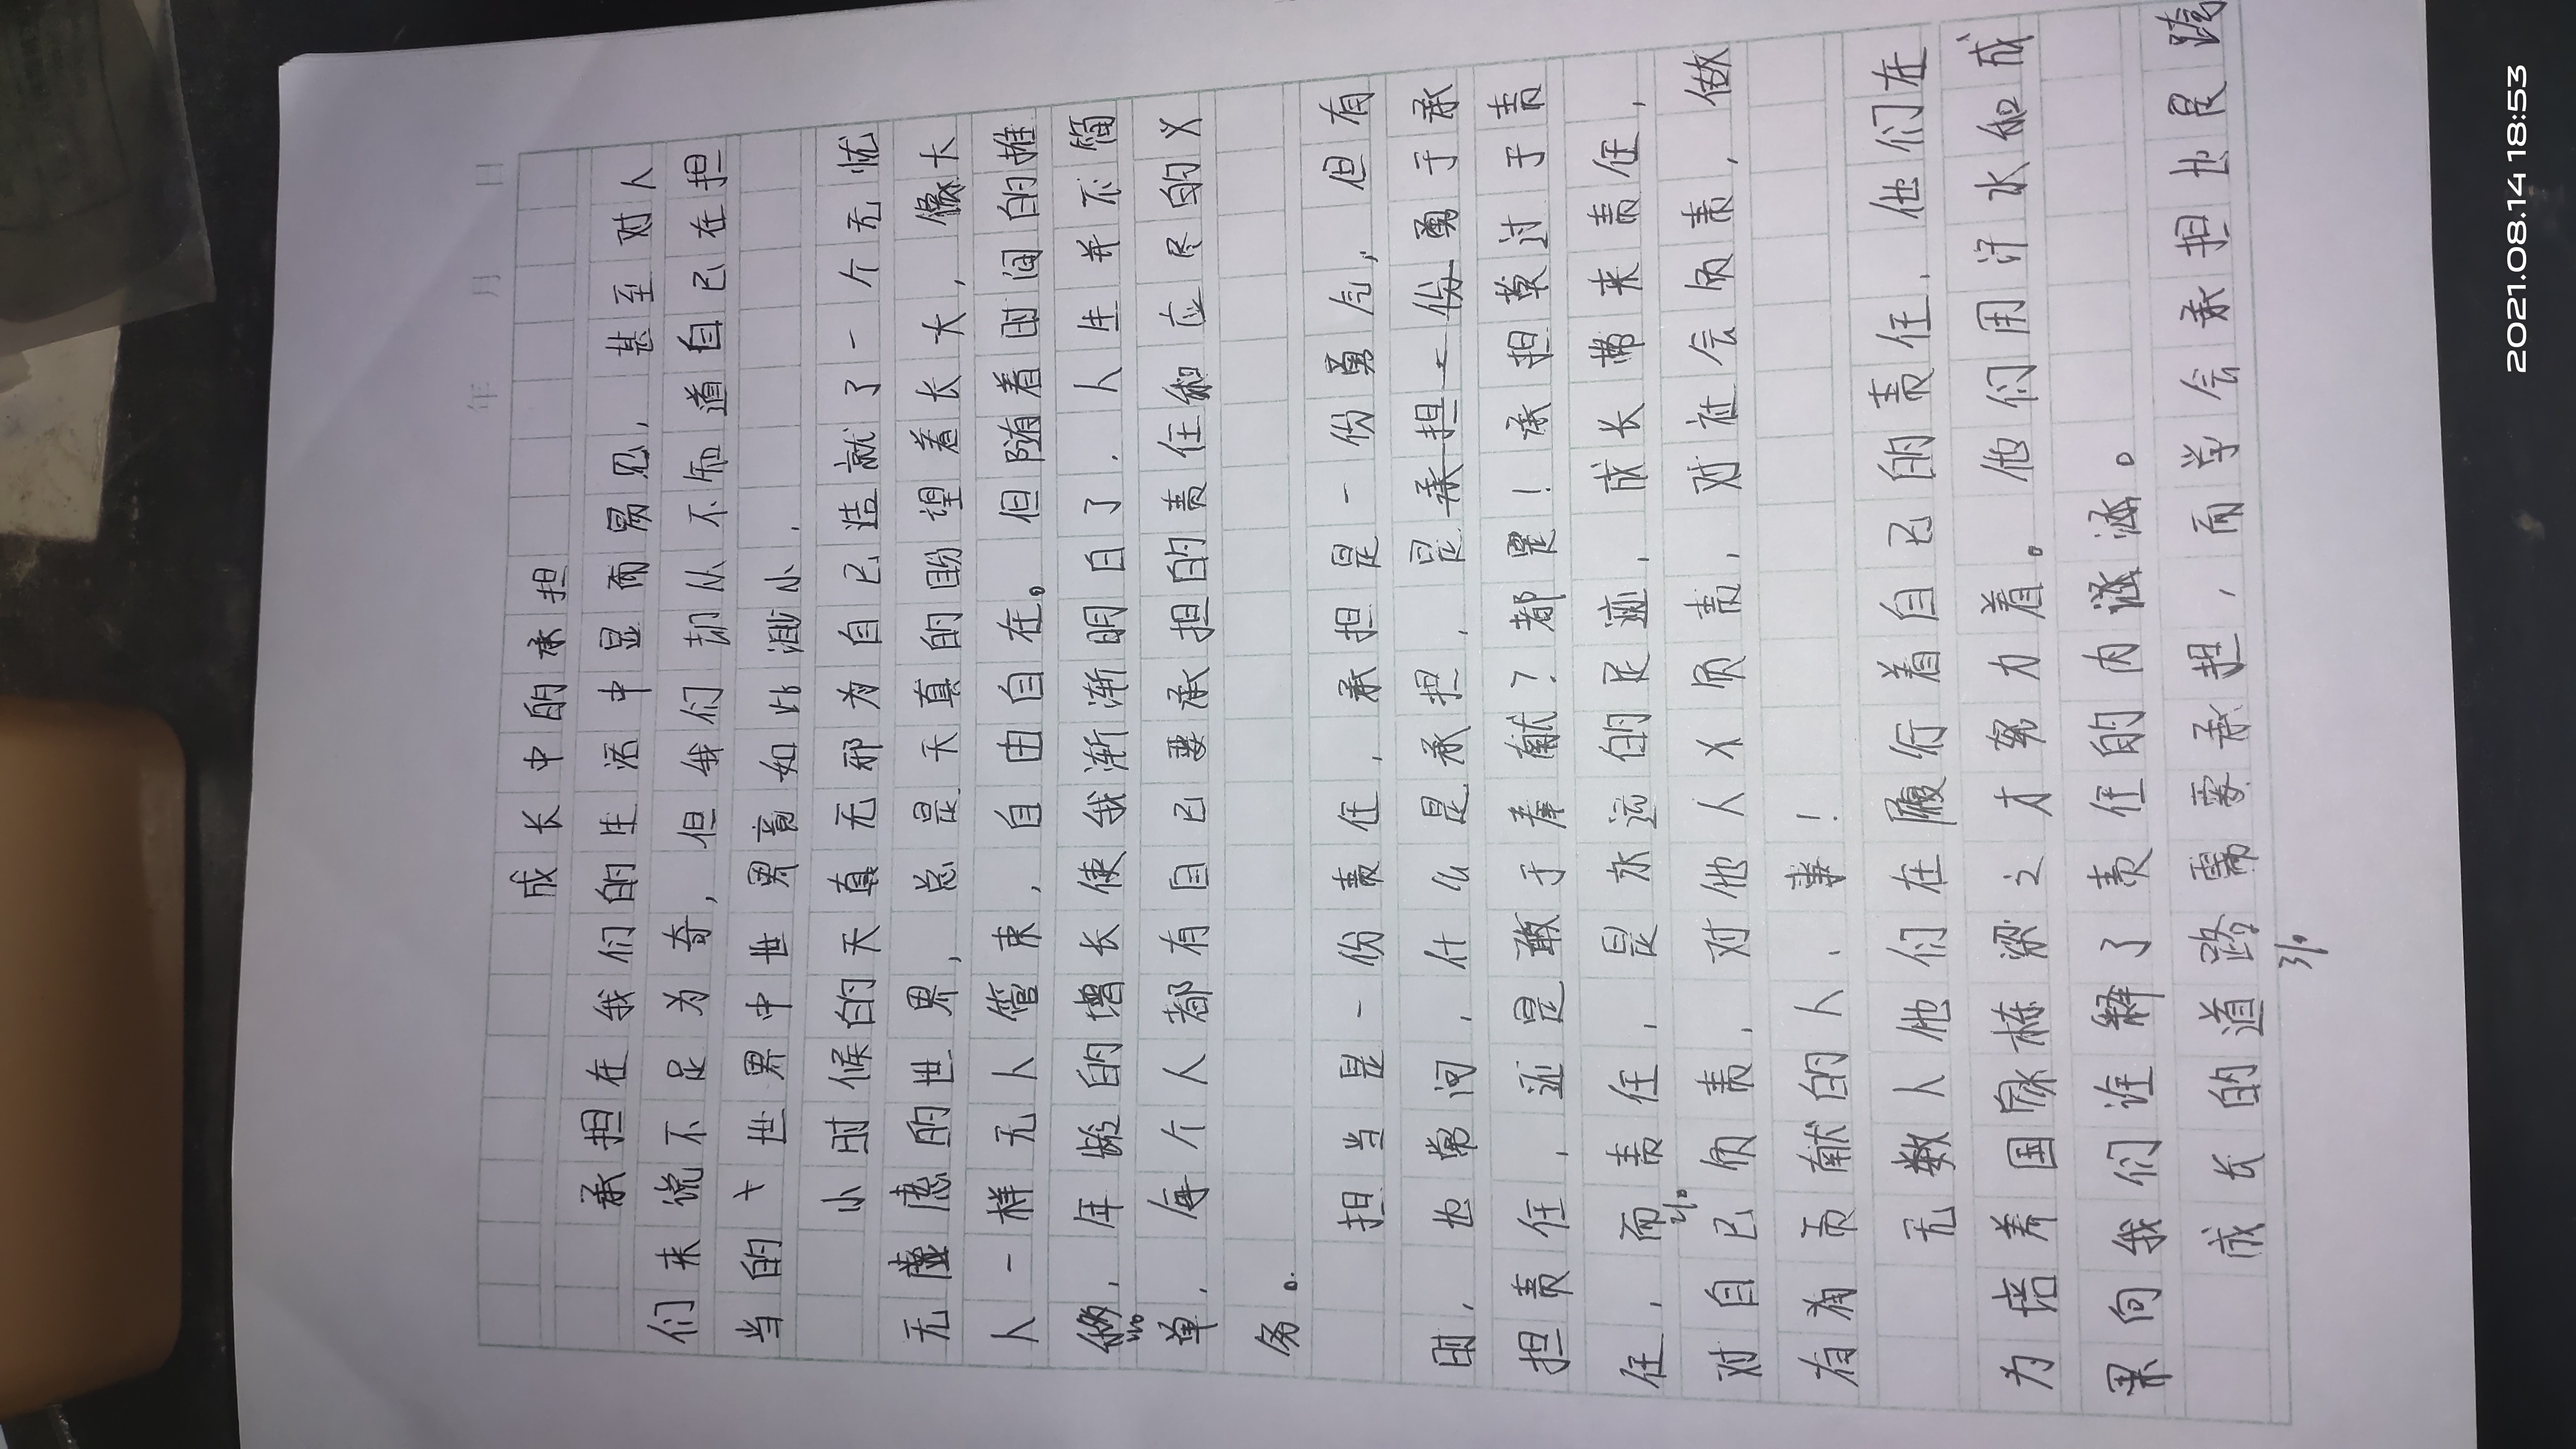 年 月 日
成长中的承担
承担在我们的生活中显而易见，甚至对人
们来说不足为奇，但我们却从不知道自己在担
当的世界中世界竟如此渺小.
小时候的天真无邪为自己造就了一个无忧
无虑的世界，总是天真的盼望着长大，像大
人一样无人管束，自由自在。但随着时间的推
移，年龄的增长使我渐渐明白了.人生并不简
单，每个人都有自己要承担的责任和应尽的义
务。
担当是一份责任，承担是一份勇气，但有
时，也常问，什么是承担，是勇于承
担责任，还是敢于奉献？都是！承担莫过于责
任，而责任，是永远的足迹，成长带来责任，
对自己负责，对他人负责，对社会负责，做
有贡献的人、事！
无数人他们在履行着自己的责任，他们在
为培养国家栋梁之才努力着。他们用汗水和成
果向我们诠释了责任的内涵。
成长的道路需要承担，而学会承担也是跨
2021.08.14 18:53